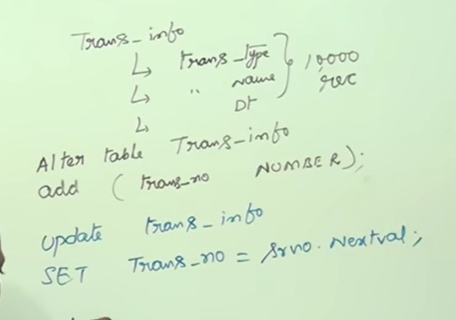 Trans_info
↳ trans_type
↳ " Name } 10000 rec
↳ Dt
Alter table Trans_info
add ( trans_no NUMBER);
update trans_info
SET Trans_no = srno.Nextval;